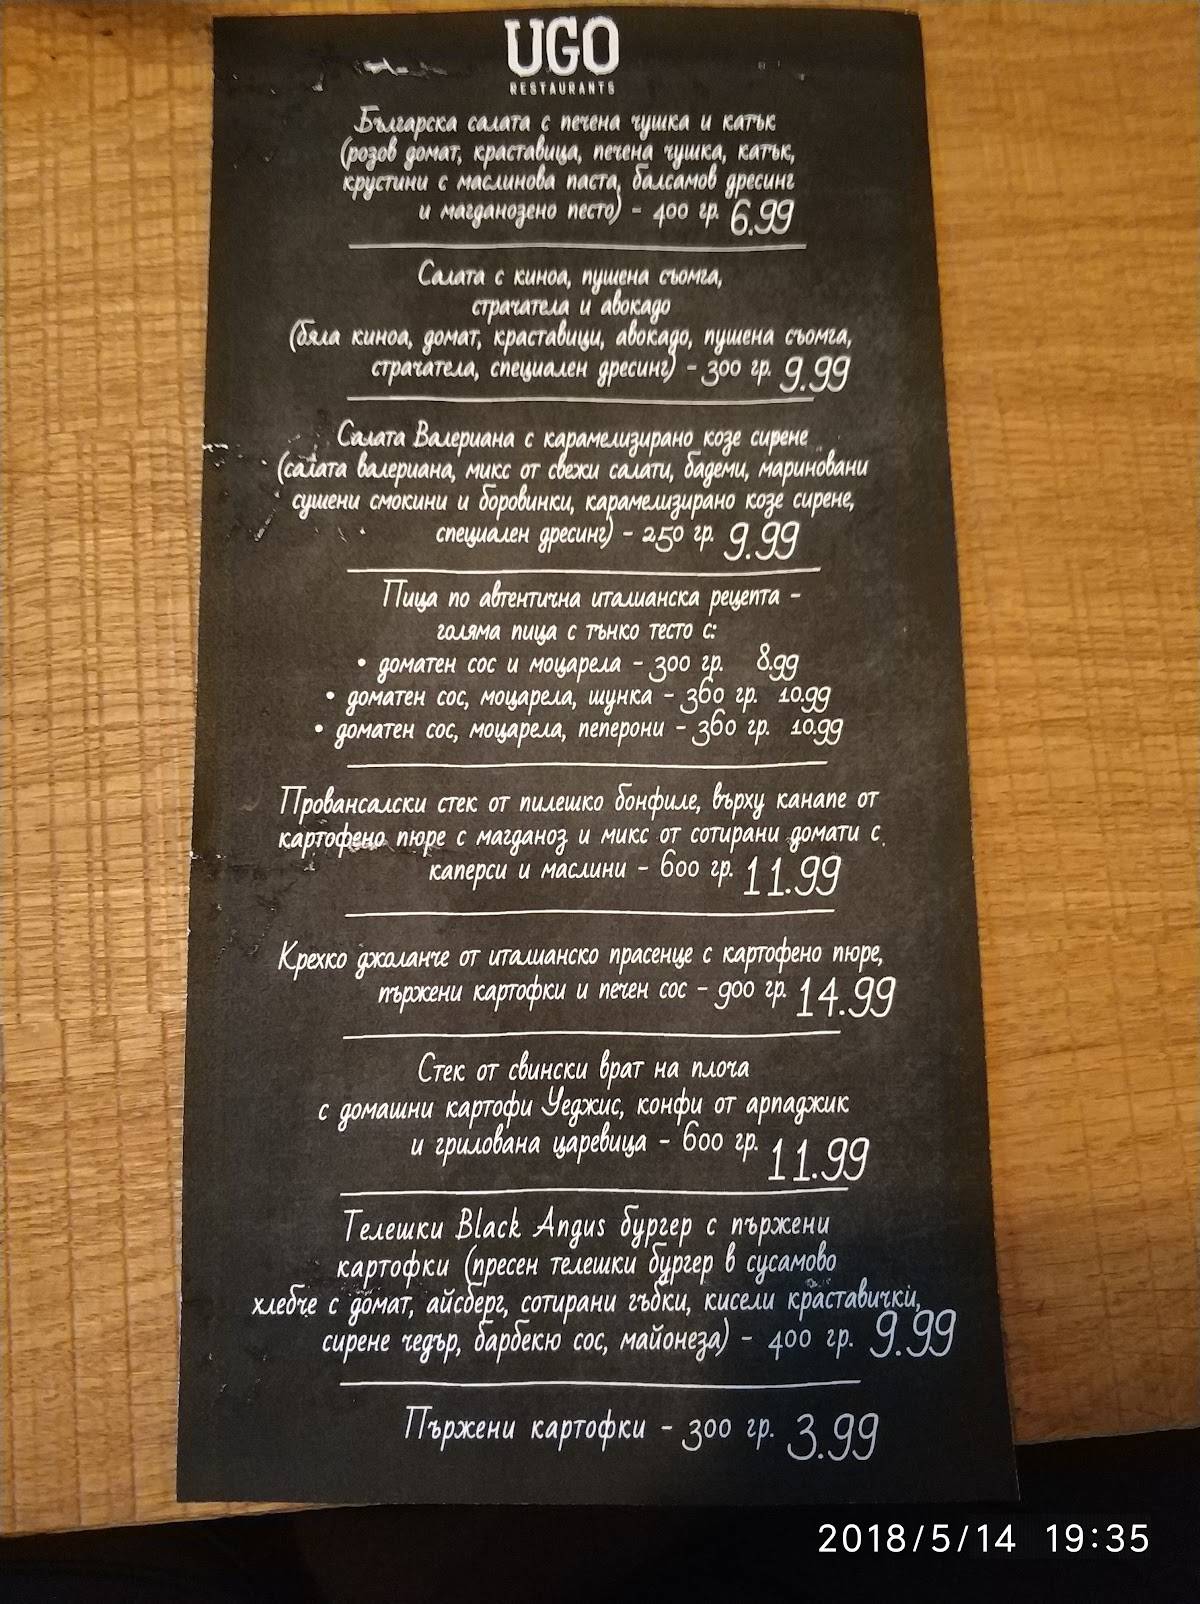 UGO
RESTAURANTS
Българска салата с печена чушка и катък
(розов домат, краставица, печена чушка, катък,
крустини с маслинова паста, балсамов дресинг
и магданозено песто) - 400 гр. 6.99
Салата с киноа, пушена сьомга,
страчатела и авокадо
(бяла киноа, домат, краставици, авокадо, пушена сьомга,
страчатела, специален дресинг) - 300 гр. 9.99
Салата Валериана с карамелизирано козе сирене
(салата валериана, микс от свежи салати, бадеми, мариновани
сушени смокини и боровинки, карамелизирано козе сирене,
специален дресинг) - 250 гр. 9.99
Пица по автентична италианска рецепта -
голяма пица с тънко тесто с:
• доматен сос и моцарела - 300 гр. 8.99
• доматен сос, моцарела, шунка - 360 гр. 10.99
• доматен сос, моцарела, пеперони - 360 гр. 10.99
Провансалски стек от пилешко бонфиле, върху канапе от
картофено пюре с магданоз и микс от сотирани домати с
каперси и маслини - 600 гр. 11.99
Крехко джоланче от италианско прасенце с картофено пюре,
пържени картофки и печен сос - 900 гр. 14.99
Стек от свински врат на плоча
с домашни картофи Уеджис, конфи от арпаджик
и грилована царевица - 600 гр. 11.99
Телешки Black Angus бургер с пържени
картофки (пресен телешки бургер в сусамово
хлебче с домат, айсберг, сотирани гъбки, кисели краставички,
сирене чедър, барбекю сос, майонеза) - 400 гр. 9.99
Пържени картофки - 300 гр. 3.99
2018/5/14 19:35